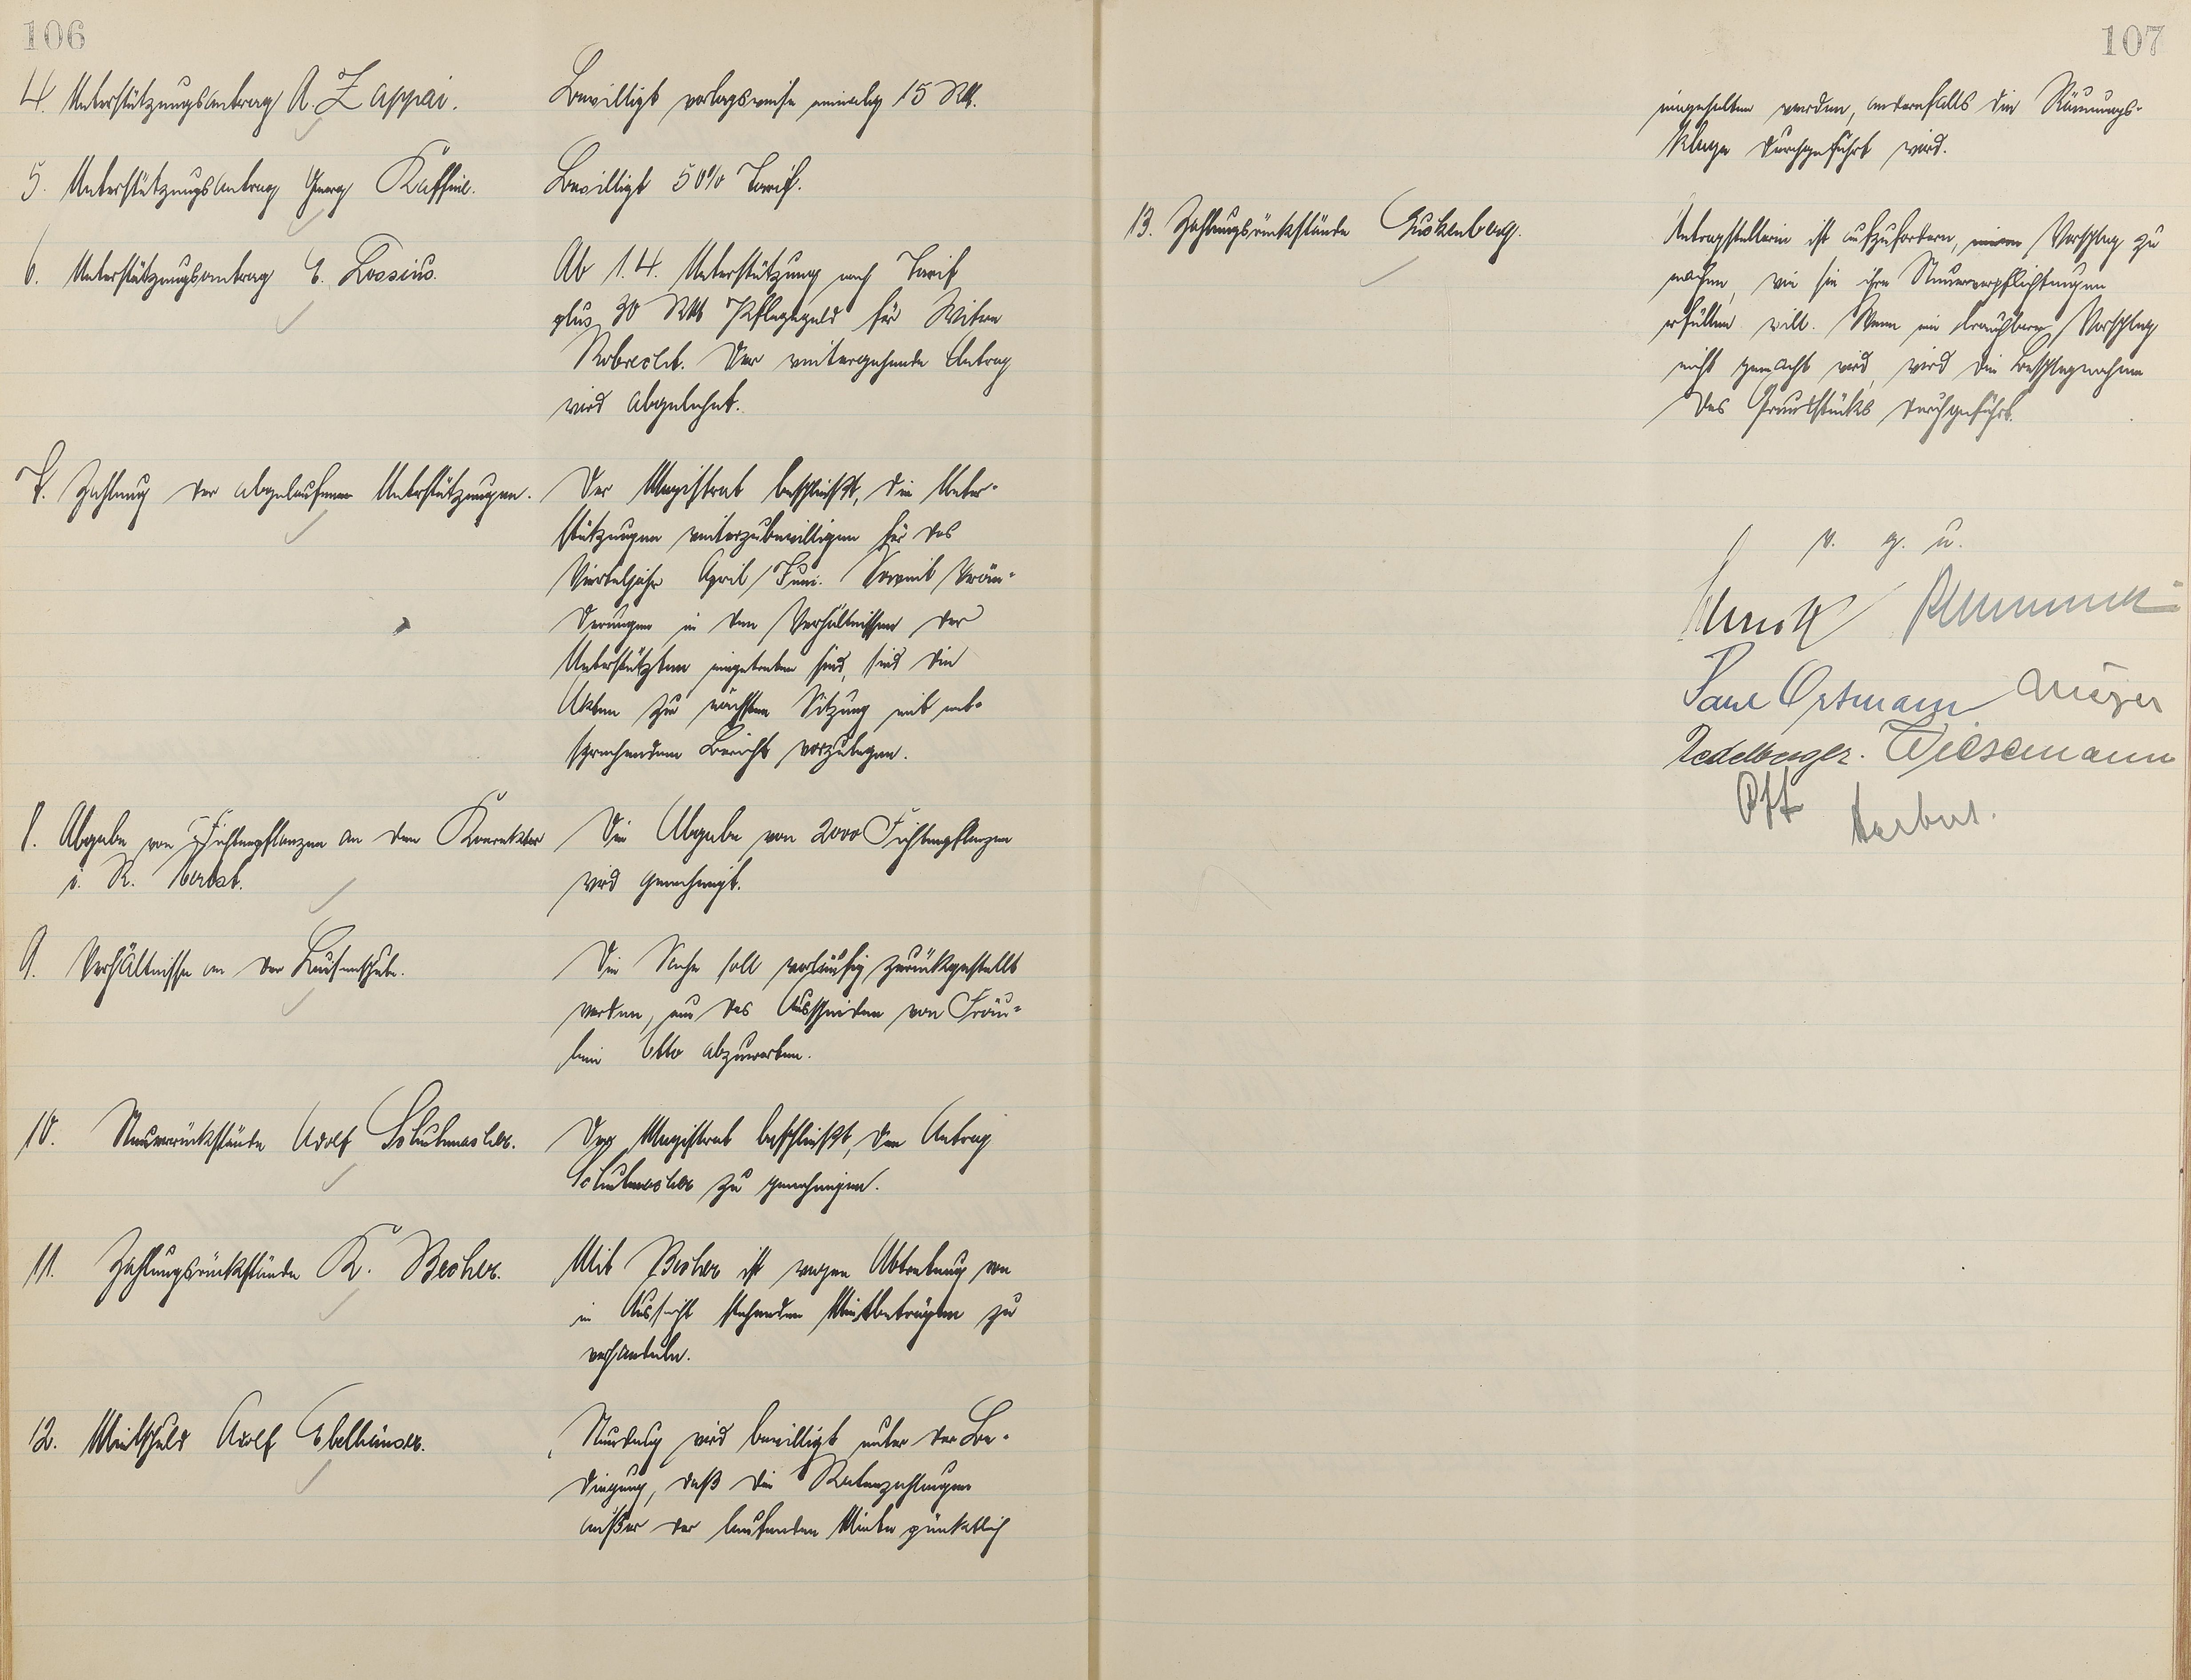 106
4. Unterstützungsantrag A. Zappai.
Bewilligt vorlagsweise einmalig 15 RM.
5. Unterstützungsantrag Georg Kaffine.
Bewilligt 50% Tarif.
6. Unterstützungsantrag E. Lossius.
Ab 1.4. Unterstützung nach Tarif
plus 30 RM Pflegegeld für Witwe
Robrecht. Der weitergehende Antrag
wird abgelehnt.
7. Zahlung der abgelaufenen Unterstützungen.
Der Magistrat beschließt, die Unter-
stützungen weiterzubewilligen für das
Vierteljahr April/Juni. Soweit Verän-
derungen in den Verhältnissen der
Unterstützten eingetreten sind, sind die
Akten zur nächsten Sitzung mit ent-
sprechendem Bericht vorzulegen.
8. Abgabe von Fichtenpflanzen an den Konrektor
i. R. Herbst.
Die Abgabe von 2000 Fichtenpflanzen
wird genehmigt.
9. Verhältnisse an der Luisenschule.
Die Sache soll vorläufig zurückgestellt
werden, um das Ausscheiden von Fräu-
lein Otto abzuwarten.
10. Steuerrückstände Adolf Schuhmacher.
Der Magistrat beschließt, den Antrag
Schuhmacher zu genehmigen.
11. Zahlungsrückstände K. Becher.
Mit Becher ist wegen Abtretung von
in Aussicht stehenden Mietbeträgen zu
verhandeln.
12. Mietschuld Adolf Ebelhäuser.
Stundung wird bewilligt unter der Be-
dingung, daß die Ratenzahlungen
außer der laufenden Miete pünktlich
107
eingehalten werden, andernfalls die Räumungs-
klage durchgeführt wird.
13. Zahlungsrückstände Guckenberg.
Antragstellerin ist aufzufordern, einen Vorschlag zu
machen, wie sie ihre Steuerverpflichtungen
erfüllen will. Wenn ein brauchbarer Vorschlag
nicht gemacht wird, wird die Beschlagnahme
des Grundstücks durchgeführt.
v. g. u.
Paul Ortmann Meyer
Wiesemann
Ott